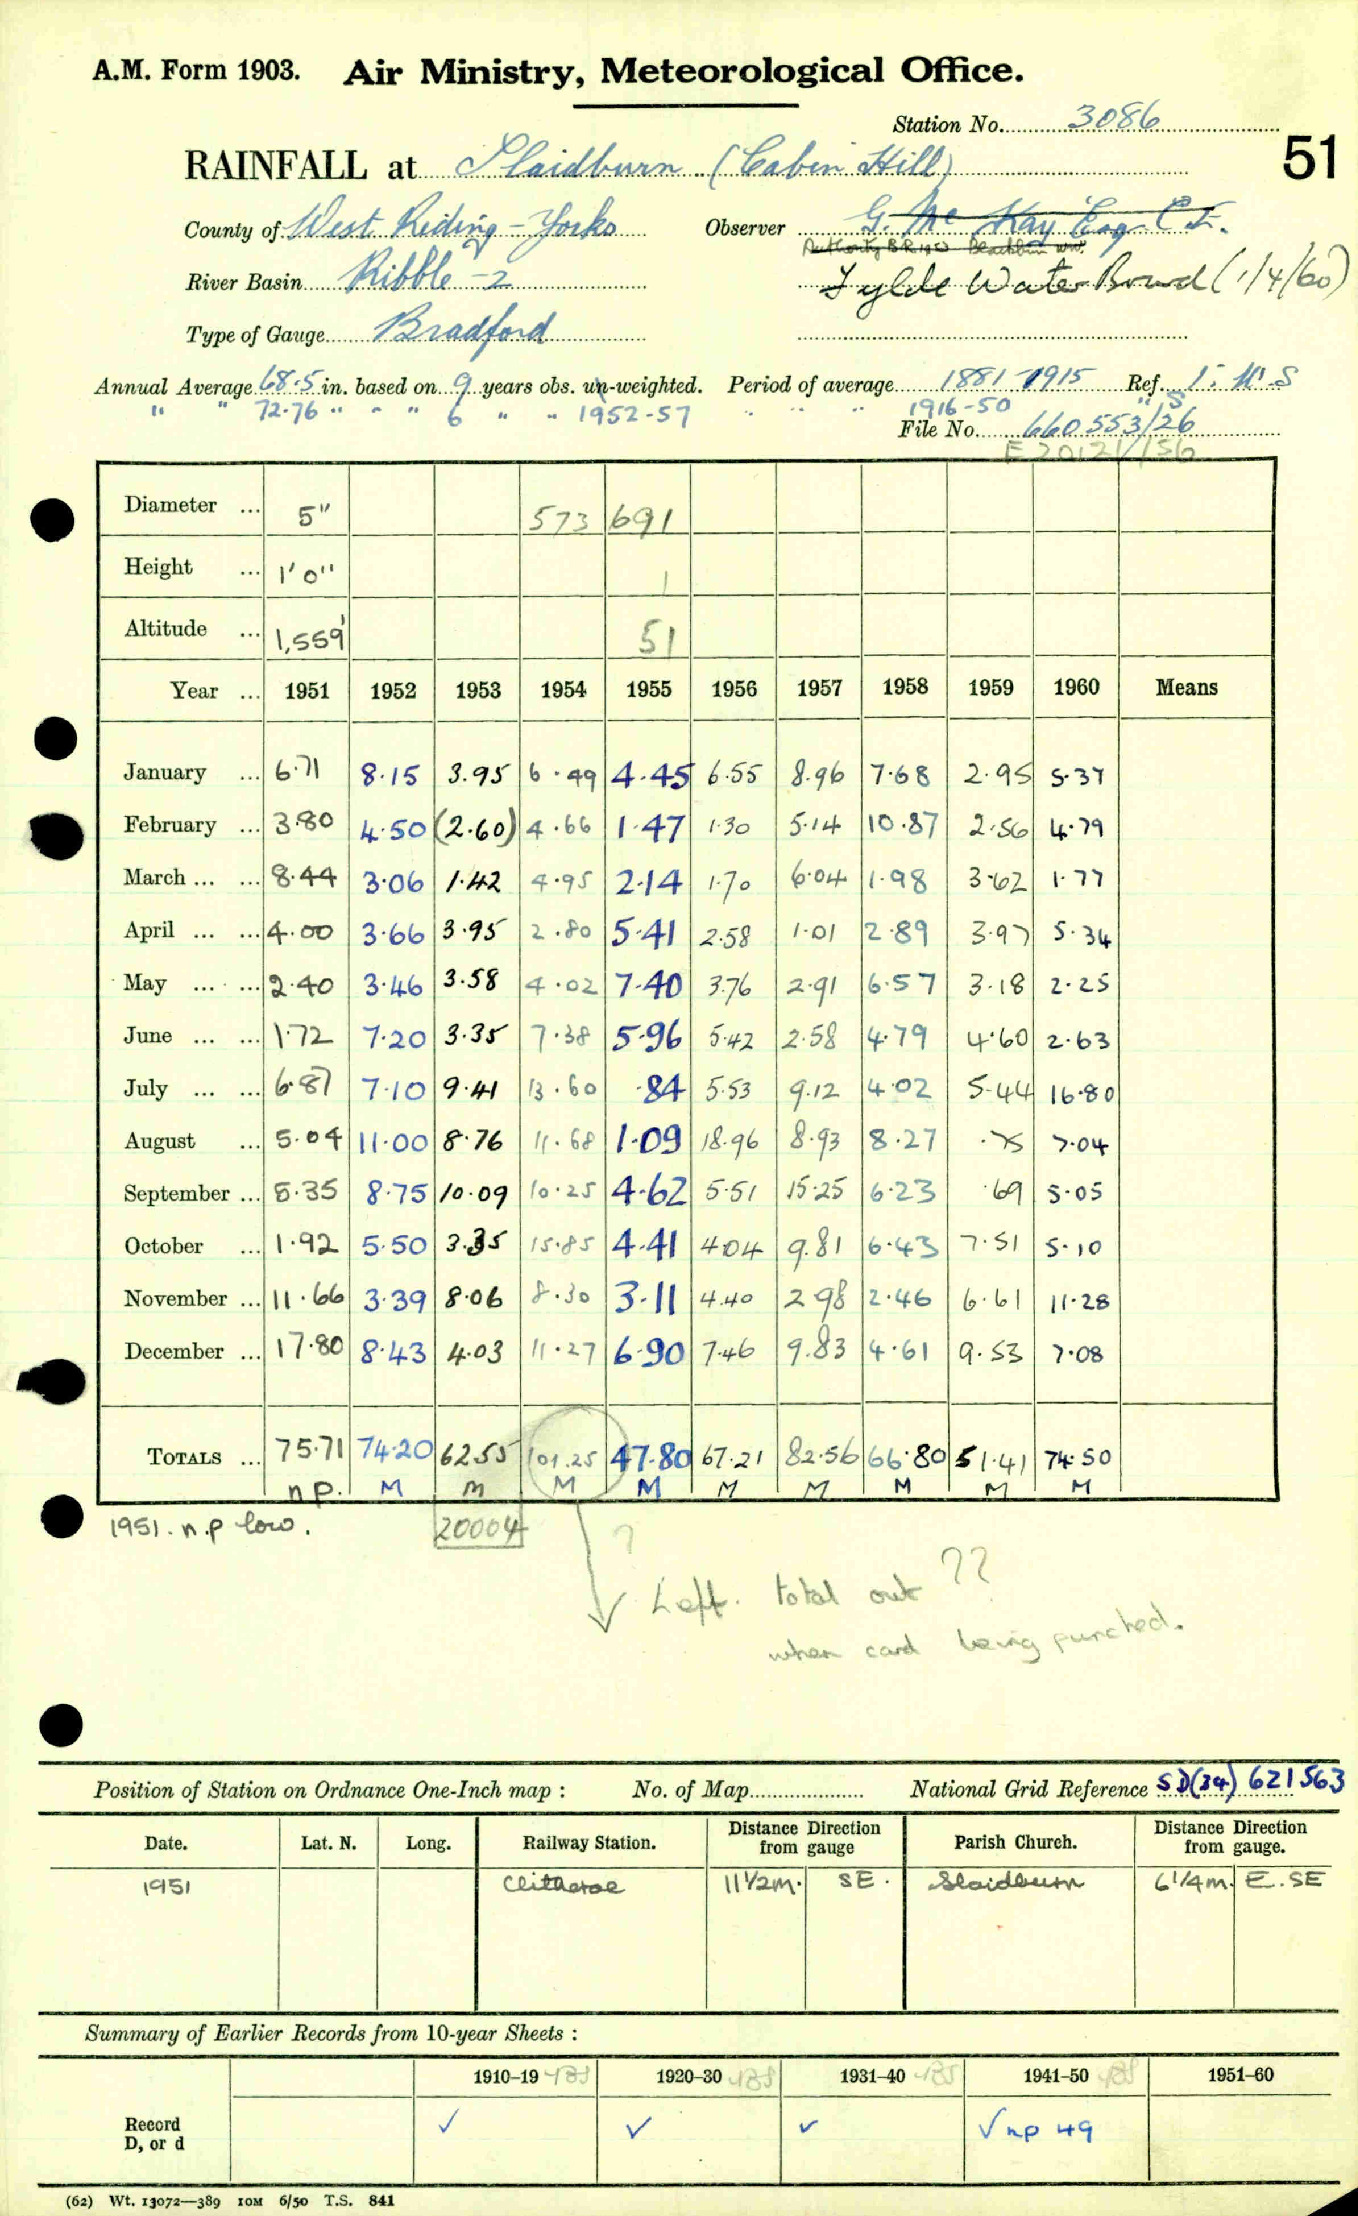 A.M. Form 1903. Air Ministry, Meteorological Office.
Station No. 3086
51
RAINFALL at Slaidburn (Cabin Hill)
County of West Riding - Yorks Observer G. Mc Kay Esq C.E.
River Basin Ribble - 2 Fylde Water Board (1/4/60)
Type of Gauge Bradford
Annual Average 68.5 in. based on 9 years obs. un-weighted. Period of average 1881-1915 Ref.
" " 72.76 " " " 6 " " 1952-57 " " " 1916-50 "
File No. 660553/26
E 20121/56
Diameter ... 5" 573 691
Height ... 1' 0" 1
Altitude ... 1,559' 51
Year ... 1951 1952 1953 1954 1955 1956 1957 1958 1959 1960 Means
January ... 6.71 8.15 3.95 6.49 4.45 6.55 8.96 7.68 2.95 5.37
February ... 3.80 4.50 (2.60) 4.66 1.47 1.30 5.14 10.87 2.56 4.79
March ... ... 8.44 3.06 1.42 4.95 2.14 1.70 6.04 1.98 3.62 1.77
April ... ... 4.00 3.66 3.95 2.80 5.41 2.58 1.01 2.89 3.97 5.34
May ... ... 2.40 3.46 3.58 4.02 7.40 3.76 2.91 6.57 3.18 2.25
June ... ... 1.72 7.20 3.35 7.38 5.96 5.42 2.58 4.79 4.60 2.63
July ... ... 6.87 7.10 9.41 13.60 .84 5.53 9.12 4.02 5.44 16.80
August ... 5.04 11.00 8.76 11.68 1.09 18.96 8.93 8.27 .75 7.04
September ... 5.35 8.75 10.09 10.25 4.62 5.51 15.25 6.23 .69 5.05
October ... 1.92 5.50 3.35 15.85 4.41 4.04 9.81 6.43 7.51 5.10
November ... 11.66 3.39 8.06 8.30 3.11 4.40 2.98 2.46 6.61 11.28
December ... 17.80 8.43 4.03 11.27 6.90 7.46 9.83 4.61 9.53 7.08
TOTALS ... 75.71 74.20 62.55 101.25 47.80 67.21 82.56 66.80 51.41 74.50
n p. M m M M M M M M M
1951. n.p low. 20004 ?
Left. total out ??
when card being punched.
Position of Station on Ordnance One-Inch map : No. of Map National Grid Reference SD(34) 621563
Date. Lat. N. Long. Railway Station. Distance from gauge Direction Parish Church. Distance from gauge. Direction
1951 Clitheroe 11 1/2 m. SE. Slaidburn 6 1/4 m. E. SE
Summary of Earlier Records from 10-year Sheets :
1910-19 1920-30 1931-40 1941-50 1951-60
Record
D, or d ✓ ✓ ✓ ✓ np 49
(62) Wt. 13072—389 10M 6/50 T.S. 841